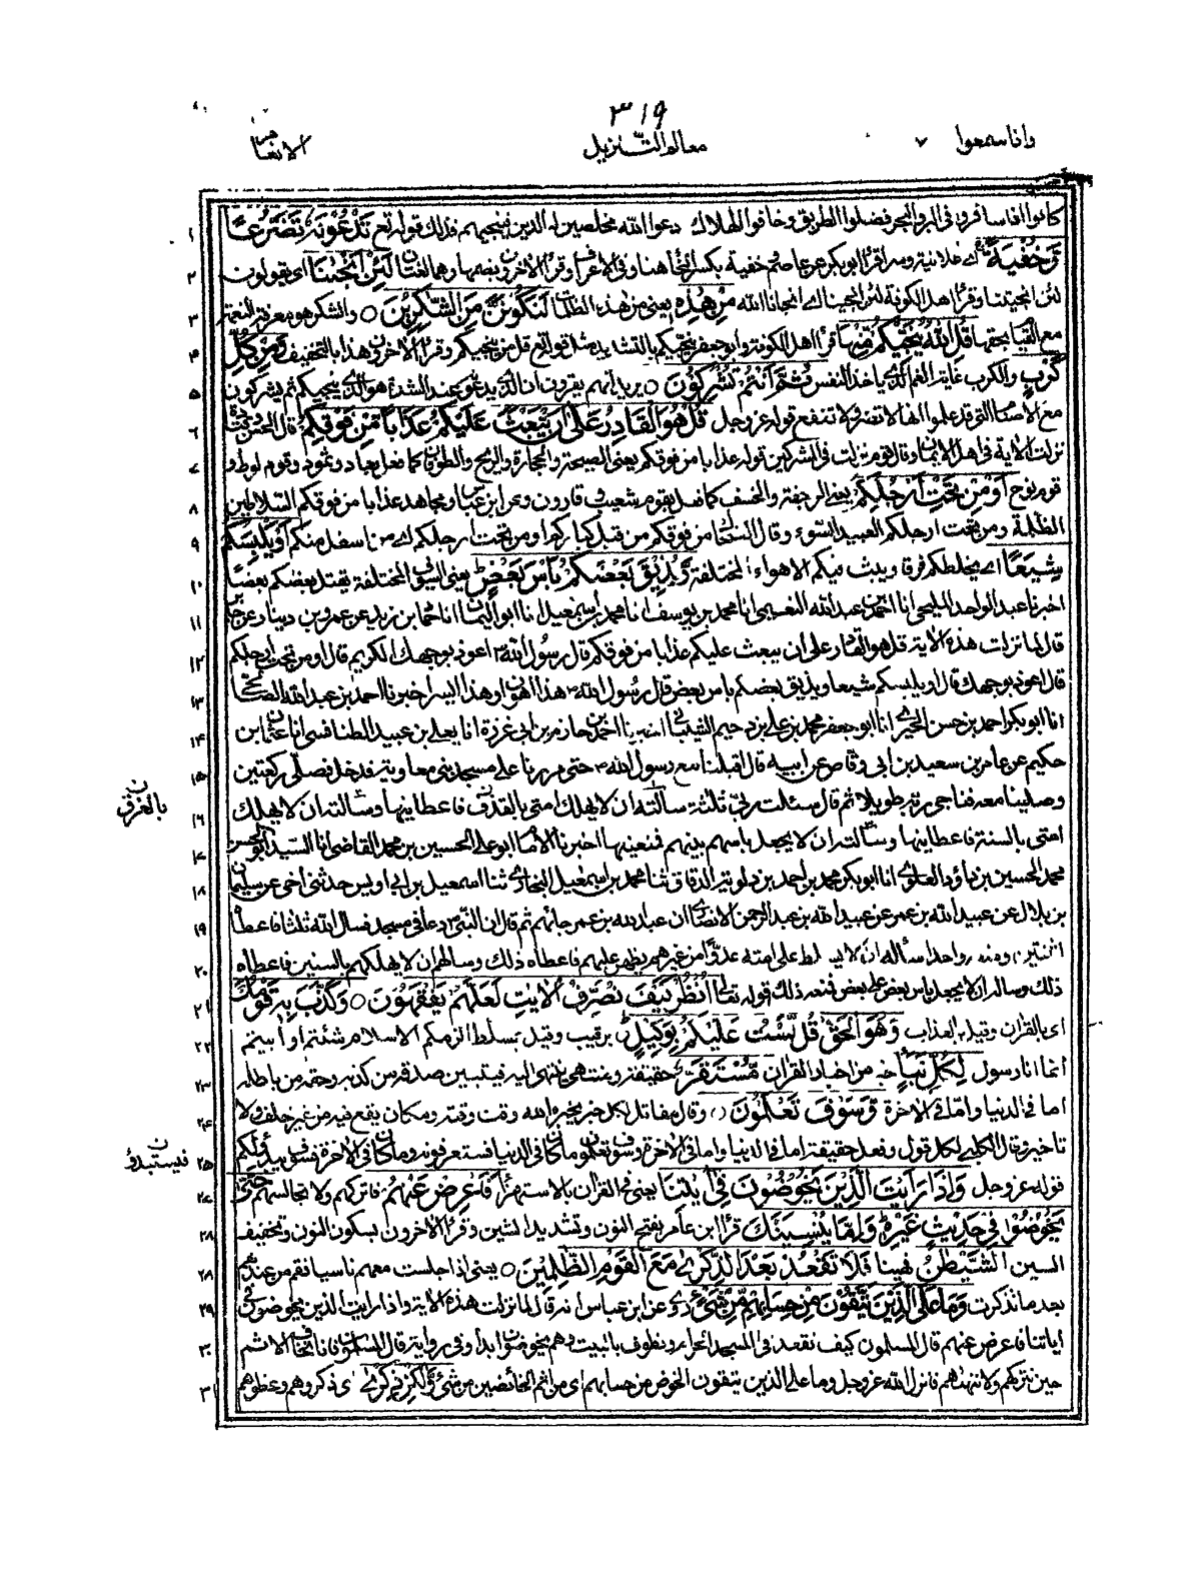 ٣١٩
واذا سمعوا ٧
معالم التنزيل
الانعام
كانوا اذا سافروا فى البر والبحر فضلوا الطريق وخافوا الهلاك دعوا الله مخلصين له الدين فينجيهم فذلك قوله تع تَدْعُوْنَهٗ تَضَرُّعًا ١
وَّخُفْيَةً اى علانية وسرا قرأ ابوبكر عن عاصم خفية بكسر الخاء هنا وفى الاعراف وقرأ الاخرون بضمها وهما لغتان لَئِنْ اَنْجٰىنَا اى يقولون ٢
لئن انجيتنا وقرأ اهل الكوفة لئن انجينا اى انجانا الله مِنْ هٰذِهٖ يعنى من هذه الظلمات لَنَكُوْنَنَّ مِنَ الشّٰكِرِيْنَ ○ والشكر هو معرفة النعمة ٣
مع القيام بحقها قُلِ اللّٰهُ يُنَجِّيْكُمْ مِّنْهَا قرأ اهل الكوفة وابوجعفر ينجيكم بالتشديد مثل قوله تع قل من ينجيكم وقرأ الاخرون هذا بالتخفيف وَمِنْ كُلِّ ٤
كَرْبٍ والكرب غاية الغم الذى ياخذ النفس ثُمَّ اَنْتُمْ تُشْرِكُوْنَ ○ يريد انهم يقرون ان الذى يدعونه عند الشدة هو الذى ينجيهم ثم يشركون ٥
مع الاصنام التى قد علموا انها لا تضر ولا تنفع قوله عز وجل قُلْ هُوَ الْقَادِرُ عَلٰى اَنْ يَّبْعَثَ عَلَيْكُمْ عَذَابًا مِّنْ فَوْقِكُمْ قال الحسن وقتادة ٦
نزلت الاية فى اهل الايمان وقال قوم نزلت فى المشركين قوله عذابا من فوقكم يعنى الصيحة والحجارة والريح والطوفان كما فعل بعاد وثمود وقوم لوط و ٧
قوم نوح اَوْ مِنْ تَحْتِ اَرْجُلِكُمْ يعنى الرجفة والخسف كما فعل بقوم شعيب وقارون وعن ابن عباس ومجاهد عذابا من فوقكم السلاطين ٨
الظلمة ومن تحت ارجلكم العبيد السوء وقال الضحاك من فوقكم من قبل كباركم او من تحت ارجلكم اى من اسفل منكم اَوْ يَلْبِسَكُمْ ٩
شِيَعًا اى يخلطكم فرقا ويبث فيكم الاهواء المختلفة وَّيُذِيْقَ بَعْضَكُمْ بَاْسَ بَعْضٍ يعنى السيوف المختلفة يقتل بعضكم بعضا ١٠
اخبرنا عبد الواحد المليحى انا احمد بن عبد الله النعيمى انا محمد بن يوسف انا محمد بن اسمعيل انا ابو اليمان انا حماد بن زيد عن عمرو بن دينار عن جابر ١١
قال لما نزلت هذه الاية قل هو القادر على ان يبعث عليكم عذابا من فوقكم قال رسول الله ۳ اعوذ بوجهك الكريم قال او من تحت ارجلكم ١٢
قال اعوذ بوجهك قال او يلبسكم شيعا ويذيق بعضكم باس بعض قال رسول الله ۳ هذا اهون او هذا ايسر اخبرنا احمد بن عبد الله الصالحى ١٣
انا ابوبكر احمد بن حسن الحيرى انا ابوجعفر محمد بن على بن دحيم الشيبانى اخبرنا احمد بن حازم بن ابى غرزة انا يعلى بن عبيد الطنافسى انا عثمان بن ١٤
حكيم عن عامر بن سعيد بن ابى وقاص عن ابيه قال اقبلنا مع رسول الله ۳ حتى مررنا على مسجد بنى معاوية فدخل فصلى ركعتين ١٥
وصلينا معه فناجى ربه طويلا ثم قال سئلت ربى ثلثة سالته ان لا يهلك امتى بالقذف فاعطانيها وسالته ان لا يهلك ١٦
بالغرق ن
امتى بالسنة فاعطانيها وسالته ان لا يجعل باسهم بينهم فمنعينها اخبرنا الامام ابو على الحسين بن محمد القاضى انا السيد ابو الحسن ١٧
محمد الحسين بن داؤد العلوى انا ابوبكر محمد بن احمد بن دلويه الدقاق ثنا محمد بن اسمعيل البخارى ثنا اسمعيل بن ابى اويس حدثنى اخى عن سليمان ١٨
بن بلال عن عبيد الله بن عمر عن عبيد الله بن عبد الرحمن الانصارى ان عبد الله بن عمر جائهم ثم قال ان النبى ۳ دعا فى مسجد فسال الله ثلثا فاعطاه ١٩
اثنتين ومنعه واحدا سأله ان لا يسلط على امته عدوا من غيرهم يظهر عليهم فاعطاه ذلك وساله ان لا يهلكهم بالسنين فاعطاه ٢٠
ذلك وساله ان لا يجعل باس بعض على بعض فمنعه ذلك قوله تعالى اُنْظُرْ كَيْفَ نُصَرِّفُ الْاٰيٰتِ لَعَلَّهُمْ يَفْقَهُوْنَ ○ وَكَذَّبَ بِهٖ قَوْمُكَ ٢١
اى بالقران وقيل بالعذاب وَهُوَ الْحَقُّ قُلْ لَّسْتُ عَلَيْكُمْ بِوَكِيْلٍ برقيب وقيل بمسلط الزمكم الاسلام شئتم او ابيتم ٢٢
انما انا رسول لِكُلِّ نَبَاٍ خبر من اخبار القران مُّسْتَقَرٌّ حقيقة ومنتهى ينتهى اليه فيتبين صدقه من كذبه وحقه من باطله ٢٣
اما فى الدنيا واما فى الاخرة وَّسَوْفَ تَعْلَمُوْنَ ○ وقال مقاتل لكل خبر يخبره الله وقت وقته ومكان يقع فيه من غير خلف ولا ٢٤
تاخير وقال الكلبى لكل قول وفعل حقيقة اما فى الدنيا واما فى الاخرة وسوف تعلمون ما كان فى الدنيا فستعرفونه وما كان فى الاخرة فسوف يبدولكم ٢٥
فيستبدو ن
قوله عز وجل وَاِذَا رَاَيْتَ الَّذِيْنَ يَخُوْضُوْنَ فِيْ اٰيٰتِنَا يعنى فى القران بالاستهزاء فَاَعْرِضْ عَنْهُمْ فاتركهم ولا تجالسهم حَتّٰى ٢٦
يَخُوْضُوْا فِيْ حَدِيْثٍ غَيْرِهٖ وَاِمَّا يُنْسِيَنَّكَ قرأ ابن عامر بفتح النون وتشديد السين وقرأ الاخرون بسكون النون وتخفيف ٢٨
السين الشَّيْطٰنُ نهينا فَلَا تَقْعُدْ بَعْدَ الذِّكْرٰى مَعَ الْقَوْمِ الظّٰلِمِيْنَ ○ يعنى اذا جلست معهم ناسيا فقم من عندهم ٢٨
بعد ما تذكرت وَمَا عَلَى الَّذِيْنَ يَتَّقُوْنَ مِنْ حِسَابِهِمْ مِّنْ شَيْءٍ روى عن ابن عباس انه قال لما نزلت هذه الاية واذا رايت الذين يخوضون فى ٢٩
اياتنا فاعرض عنهم قال المسلمون كيف نقعد فى المسجد الحرام ونطوف بالبيت وهم يخوضون ابدا وفى رواية قال المسلمون فانا نخاف الاثم ٣٠
حين نتركهم ولا ننهاهم فانزل الله عز وجل وما على الذين يتقون الخوض من حسابهم اى من اثم الخائضين من شئ وَّلٰكِنْ ذِكْرٰى اى ذكروهم وعظوهم ٣١